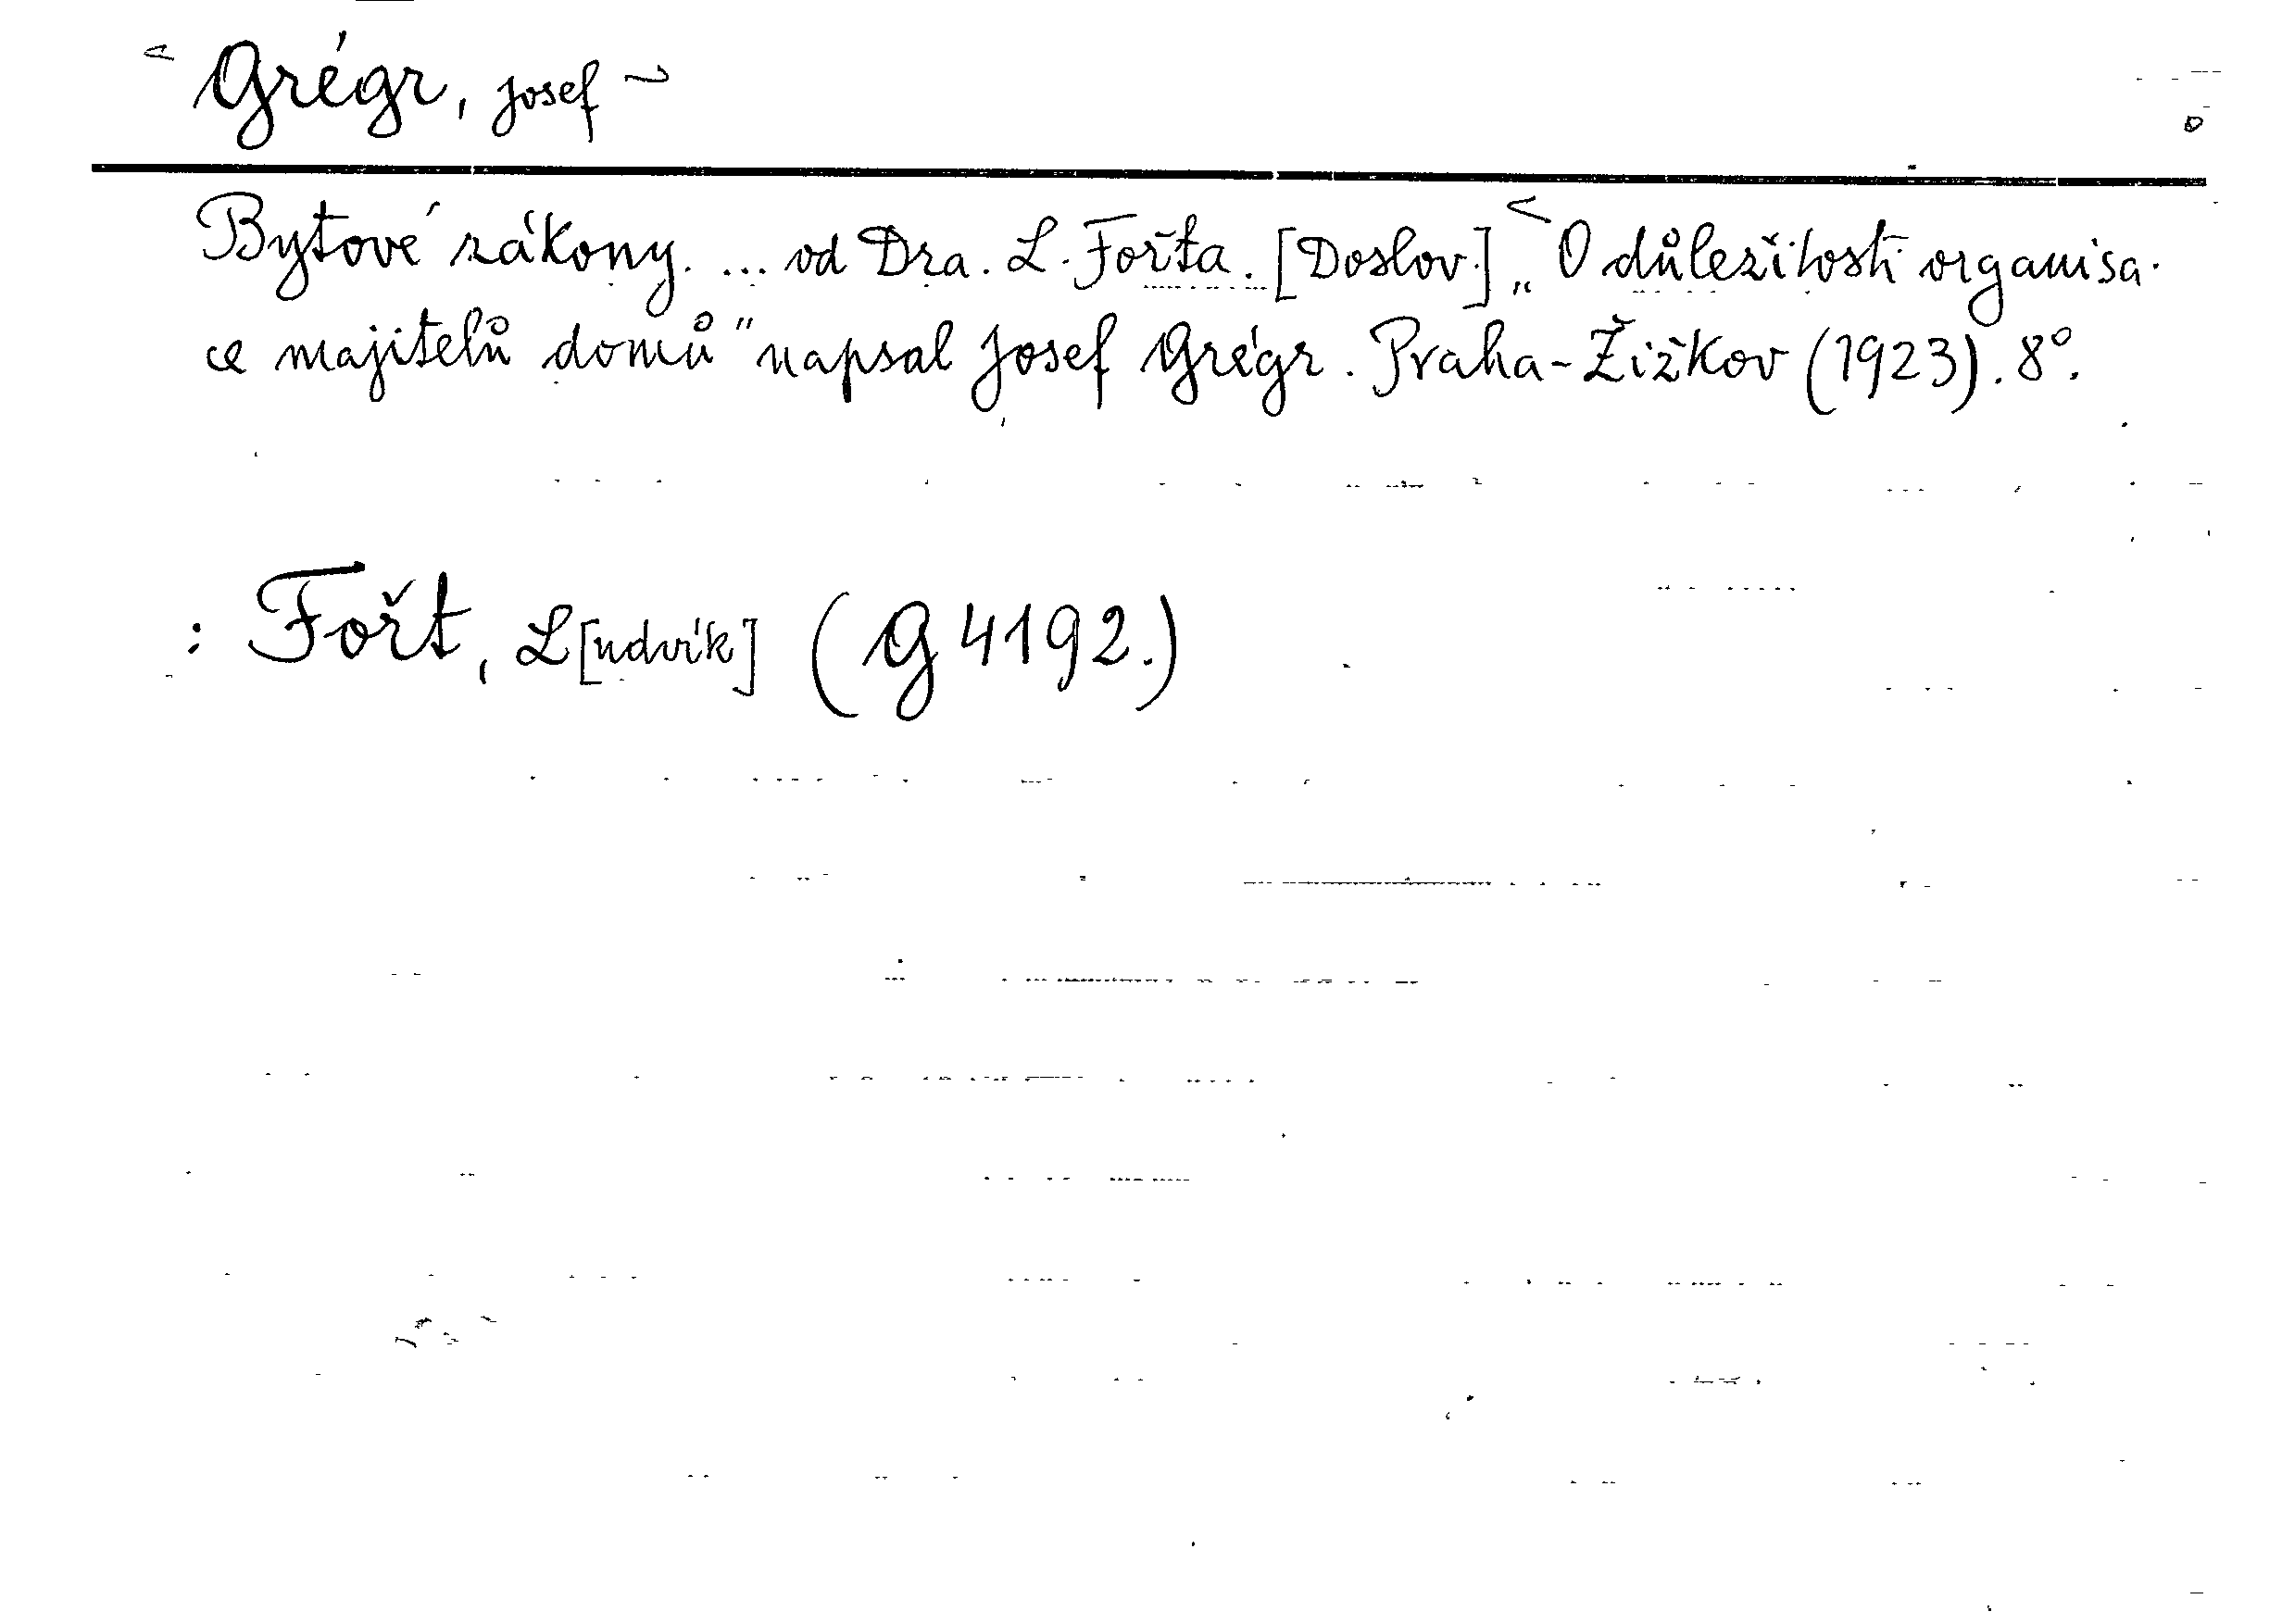 Grégr, Josef
Bytové zákony. ... od Dra. L. Fořta. [Doslov.] „O důležitosti organisa-
ce majitelů domů" napsal Josef Grégr. Praha-Žižkov (1923). 8°.
: Fořt, L[udvík] (G 4192.)